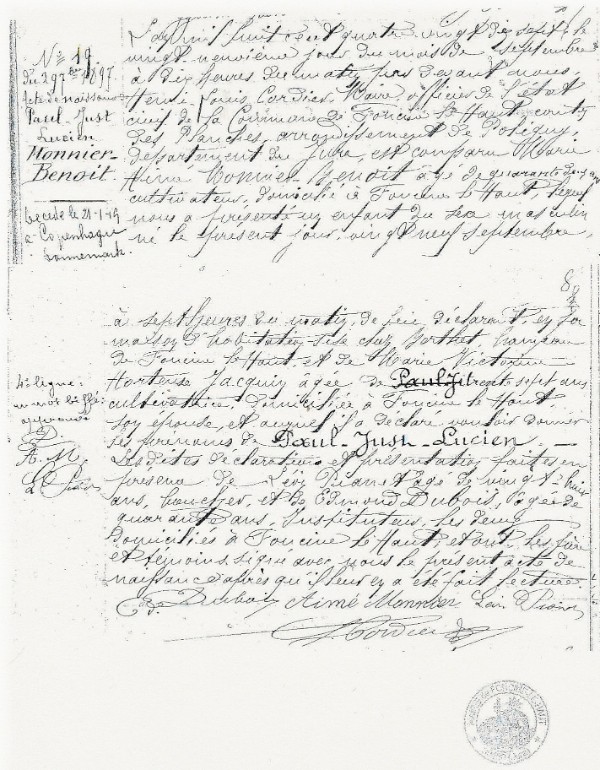 N° 19
du 29 7bre 1897
acte de naissance
Paul Just
Lucien
Monnier-
Benoit
décédé le 21-1-19
à Copenhague
Dannemark
L'an mil huit cent quatre vingt dix sept, le
vingt neuvième jour du mois de septembre
à dix heures du matin, par devant nous,
Henri Louis Cordier, Maire, officier de l'état
civil de la Commune de Foncine le Haut, canton
des Planches, arrondissement de Poligny,
département du Jura, est comparu Marie
Aimé Monnier Benoit âgé de quarante ans
cultivateur, domicilié à Foncine le Haut, lequel
nous a présenté un enfant du sexe masculin
né le présent jour, vingt neuf septembre,
à sept heures du matin, de lui, déclarant, en sa
maison d'habitation sise chez Berthet, hameau
de Foncine le Haut, et de Marie Victorine
Hortense Jacquin âgée de trente sept ans
cultivatrice, domiciliée à Foncine le Haut,
son épouse, et auquel il a déclaré vouloir donner
les prénoms de Paul-Just-Lucien. —
Les dites déclaration et présentation faites en
présence de Léon Pianet âgé de vingt huit
ans, boucher, et de Edmond Dubois, âgé de
quarante ans, Instituteur, les deux
domiciliés à Foncine le Haut, et ont les père
et témoins, signé avec nous le présent acte de
naissance après qu'il leur en a été fait lecture.
E. Dubois Aimé Monnier Léon Pianet
Cordier
4e ligne:
un mot biffé
approuvé
D
A. M.